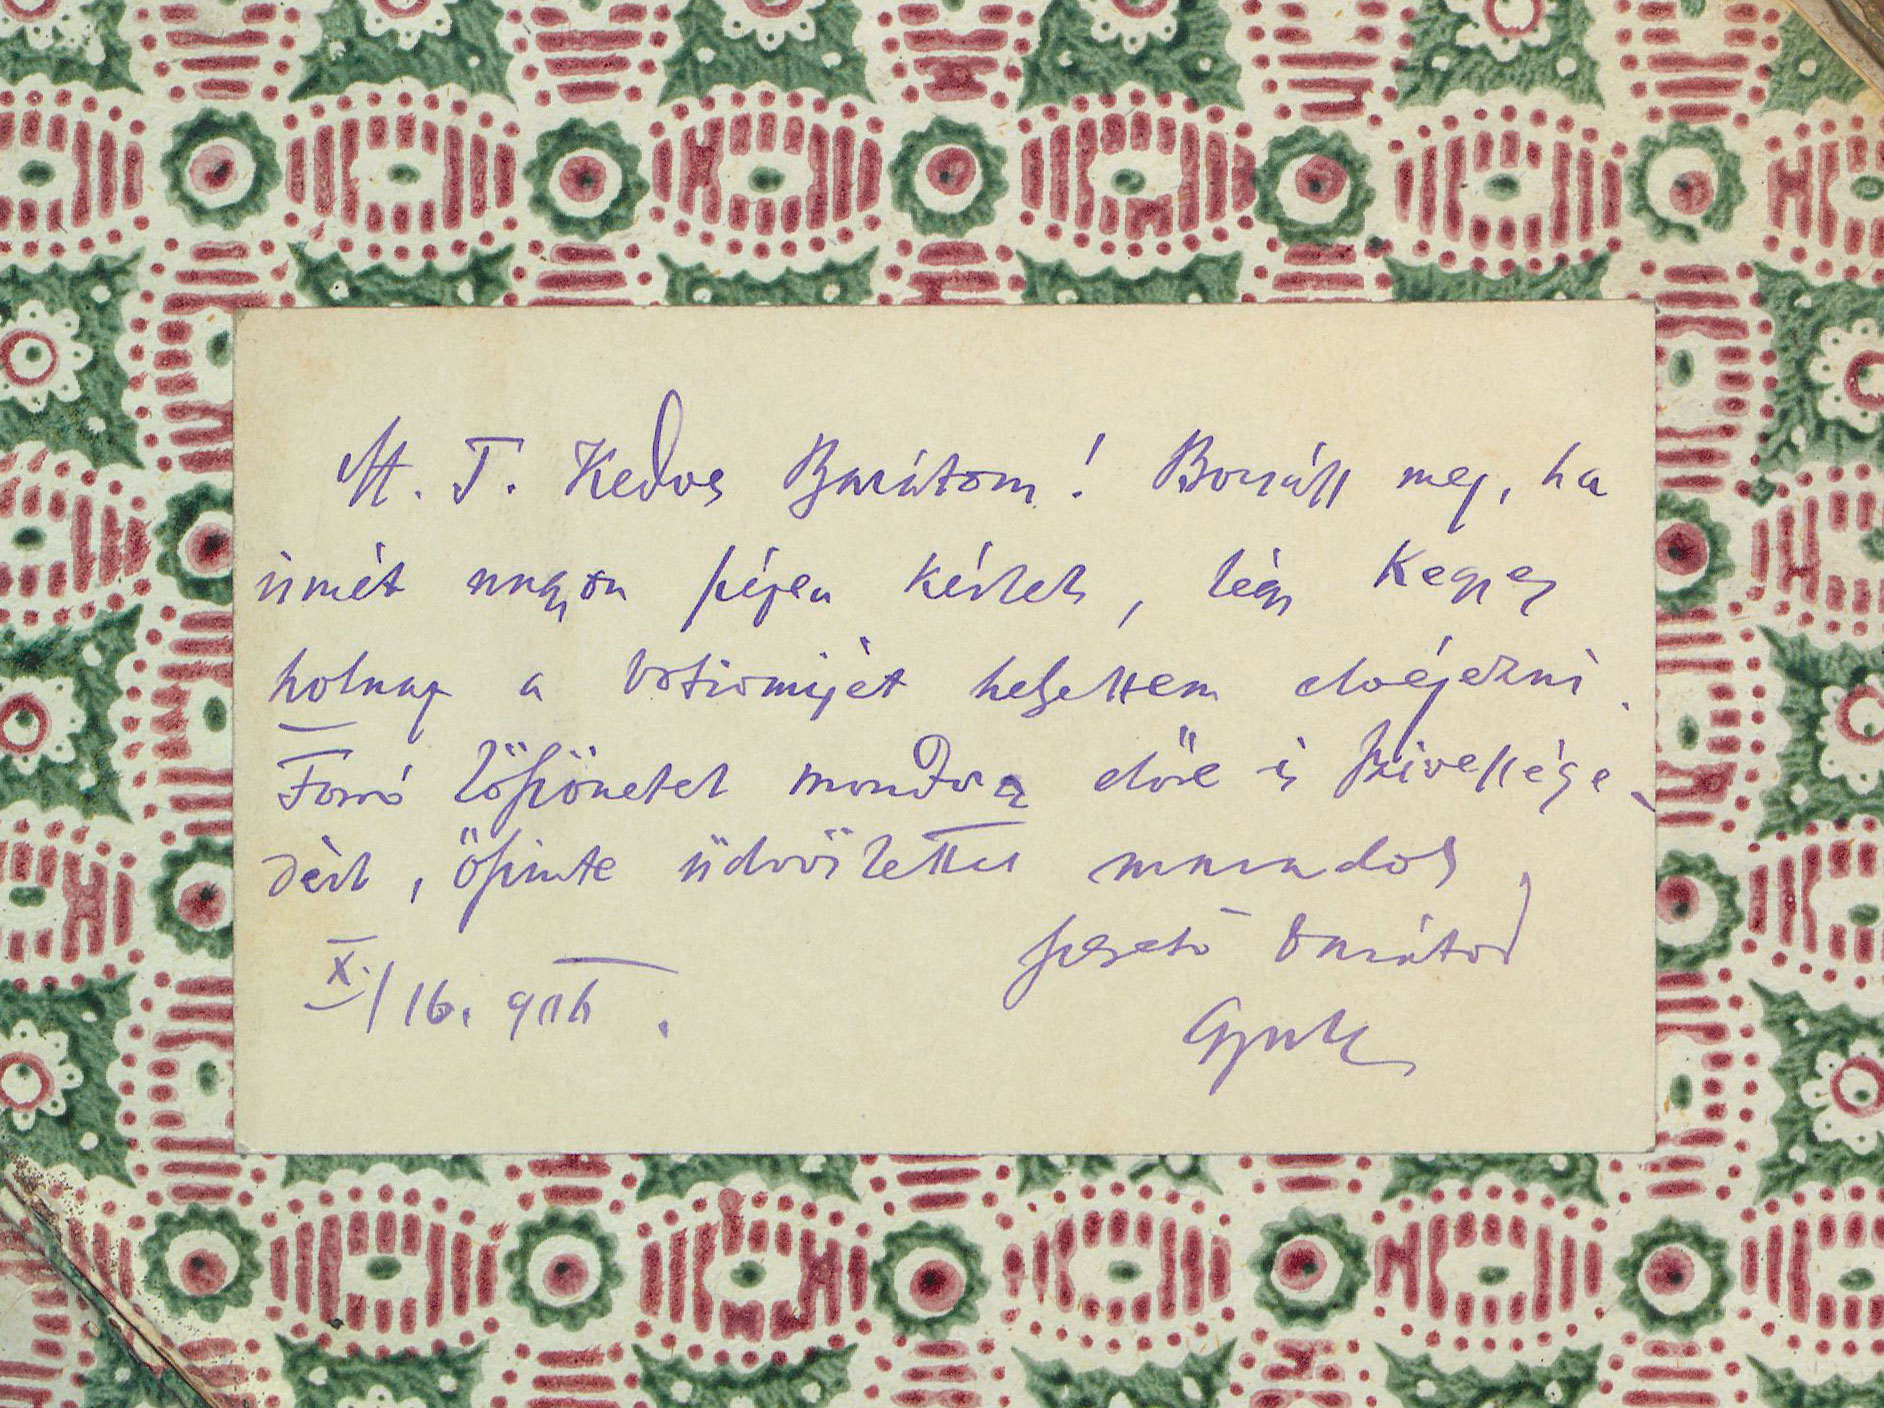 M. T. Kedves Barátom! Bocsáss meg, ha
ismét nagyon szépen kérlek, légy kegyes
holnap a helyettem elvégezni.
Forró köszönetet mondva előre is szívessége-
dért, őszinte üdvözlettel maradok
szerető barátod
X./16. 916. Gyula